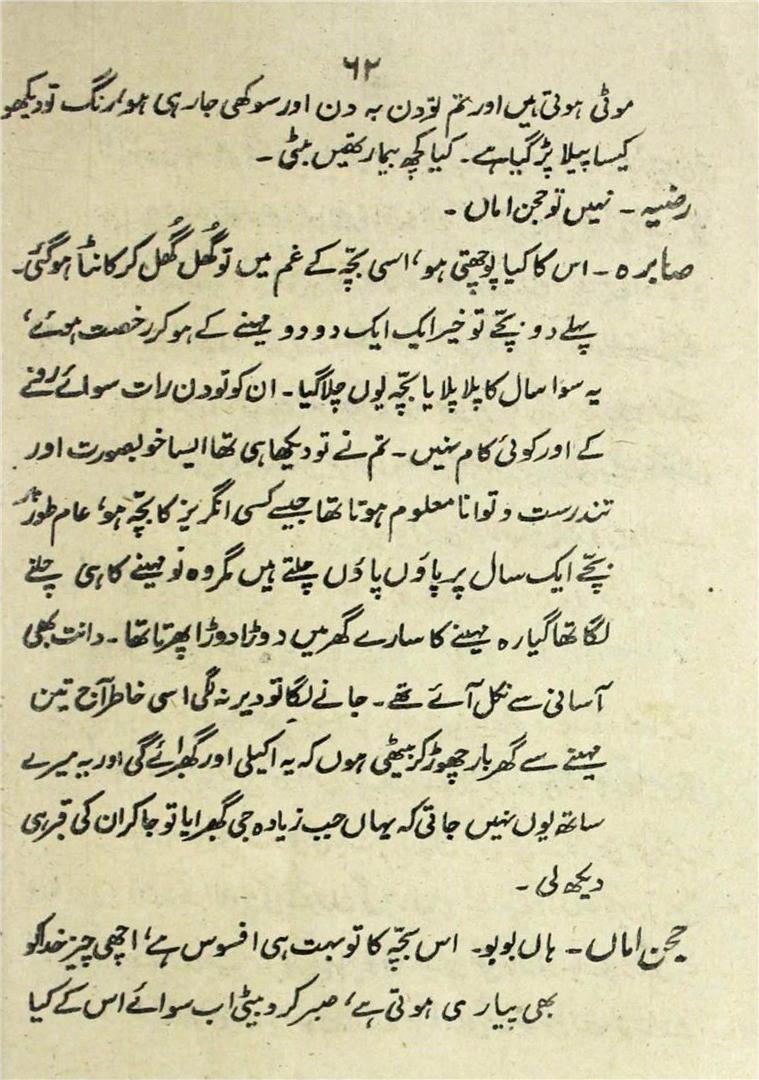 ۶۲
موٹی ہوتی ہیں اور تم تو دن بہ دن اور سوکھی جا رہی ہو، رنگ تو دیکھو
کیسا پیلا پڑ گیا ہے۔ کیا کچھ بیمار تھیں بیٹی۔
رضیہ ۔ نہیں تو حجن اماں ۔
صابرہ ۔ اس کا کیا پوچھتی ہو، اسی بچّہ کے غم میں تو گُھل گُھل کر کانٹا ہو گئی۔
پہلے دو بچّے تو خیر ایک ایک دو دو مہینے کے ہو کر رخصت ہوئے،
یہ سوا سال کا پلا پلایا بچّہ یوں چلا گیا۔ ان کو تو دن رات سوائے رونے
کے اور کوئی کام نہیں ۔ تم نے تو دیکھا ہی تھا ایسا خوبصورت اور
تندرست و توانا معلوم ہوتا تھا جیسے کسی انگریز کا بچّہ ہو، عام طور پر
بچّے ایک سال پر پاؤں پاؤں چلتے ہیں مگر وہ نو مہینے کا ہی چلنے
لگا تھا گیارہ مہینے کا سارے گھر میں دوڑا دوڑا پھرتا تھا ۔ دانت بھی
آسانی سے نکل آئے تھے ۔ جانے لگا تو دیر نہ لگی اسی خاطر آج تین
مہینے سے گھر بار چھوڑ کر بیٹھی ہوں کہ یہ اکیلی اور گھبرائے گی اور یہ میرے
ساتھ یوں نہیں جاتی کہ یہاں جب زیادہ جی گھبرایا تو جا کر ان کی قبر ہی
دیکھ لی ۔
حجن اماں ۔ ہاں بوبو۔ اس بچّہ کا تو بہت ہی افسوس ہے، اچھی چیز خدا کو
بھی پیاری ہوتی ہے، صبر کرو بیٹی اب سوائے اس کے کیا